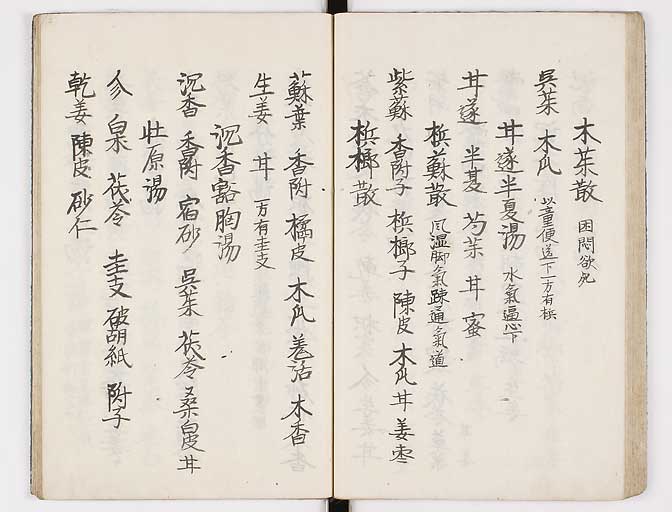 木茱散 困悶欲死
呉茱 木瓜 以童便送下一方有梹
甘遂半夏湯 水氣逼心下
甘遂 半夏 芍茱 甘 蜜
梹蘓散 風湿脚氣疎通氣道
紫蘓 香附子 梹榔子 陳皮 木瓜 甘 姜 枣
梹榔散
蘇葉 香附 橘皮 木瓜 羗活 木香
生姜 甘 一方有圭支
沉香豁胸湯
沉香 香附 宿砂 呉茱 茯苓 桑白皮 甘
壮原湯
参 白朮 茯苓 圭支 破胡紙 附子
乾姜 陳皮 砂仁